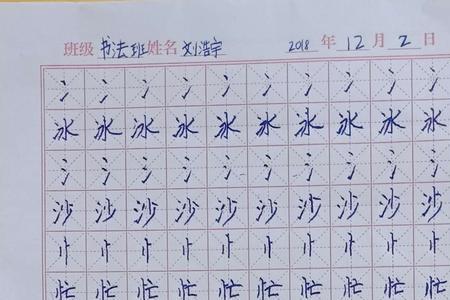 班级 书法班 姓名 刘浩宇 2018 年 12 月 2 日
冫 冫 冫 冫 冫 冫 冫 冫 冫 冫
冰 冰 冰 冰 冰 冰 冰 冰 冰 冰
氵 氵 氵 氵 氵 氵 氵 氵 氵 氵
沙 沙 沙 沙 沙 沙 沙 沙 沙 沙
忄 忄 忄 忄 忄 忄 忄 忄 忄 忄
忙 忙 忙 忙 忙 忙 忙 忙 忙 忙